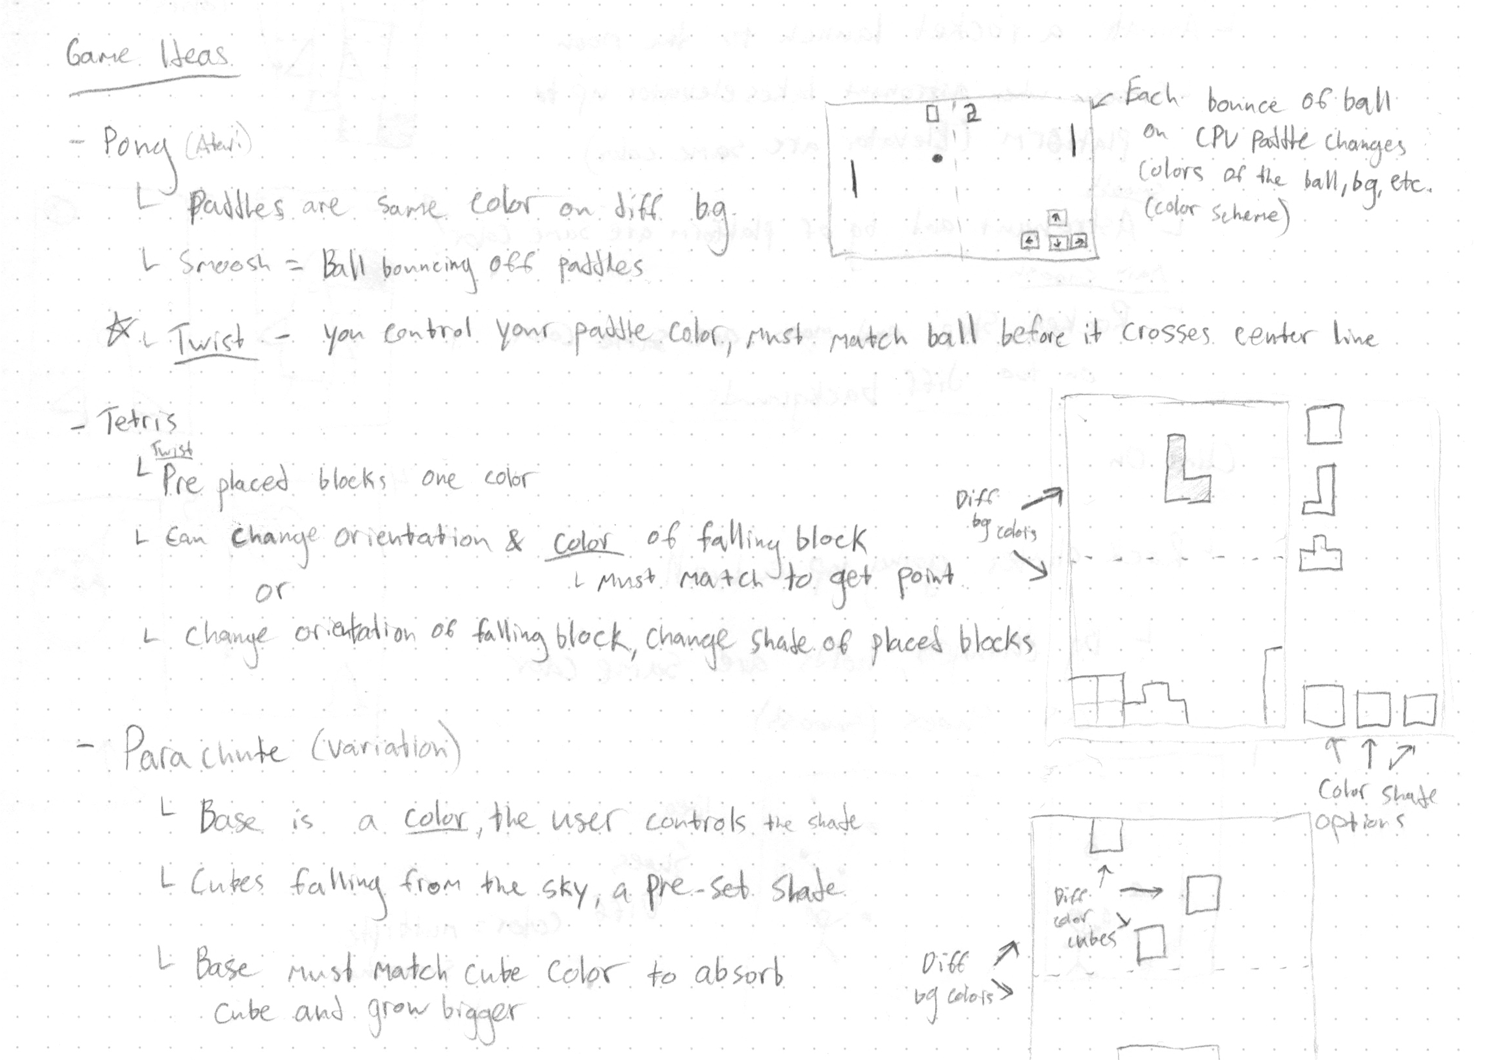 Game Ideas
- Pong (Atari)
└ Paddles are same color on diff bg
└ Smoosh = Ball bouncing off paddles
☆ └ Twist - you control your paddle color, must match ball before it crosses center line
0 2
Each bounce of ball
on CPU paddle changes
colors of the ball, bg, etc.
(color scheme)
- Tetris
Twist
└ Pre placed blocks one color
└ Can change orientation & color of falling block
└ must match to get point
or
└ Change orientation of falling block, change shade of placed blocks
Diff
bg colors
Color shade
options
- Parachute (variation)
└ Base is a color, the user controls the shade
└ Cubes falling from the sky, a pre-set shade
└ Base must match cube color to absorb
cube and grow bigger
Diff
color
cubes
Diff
bg colors